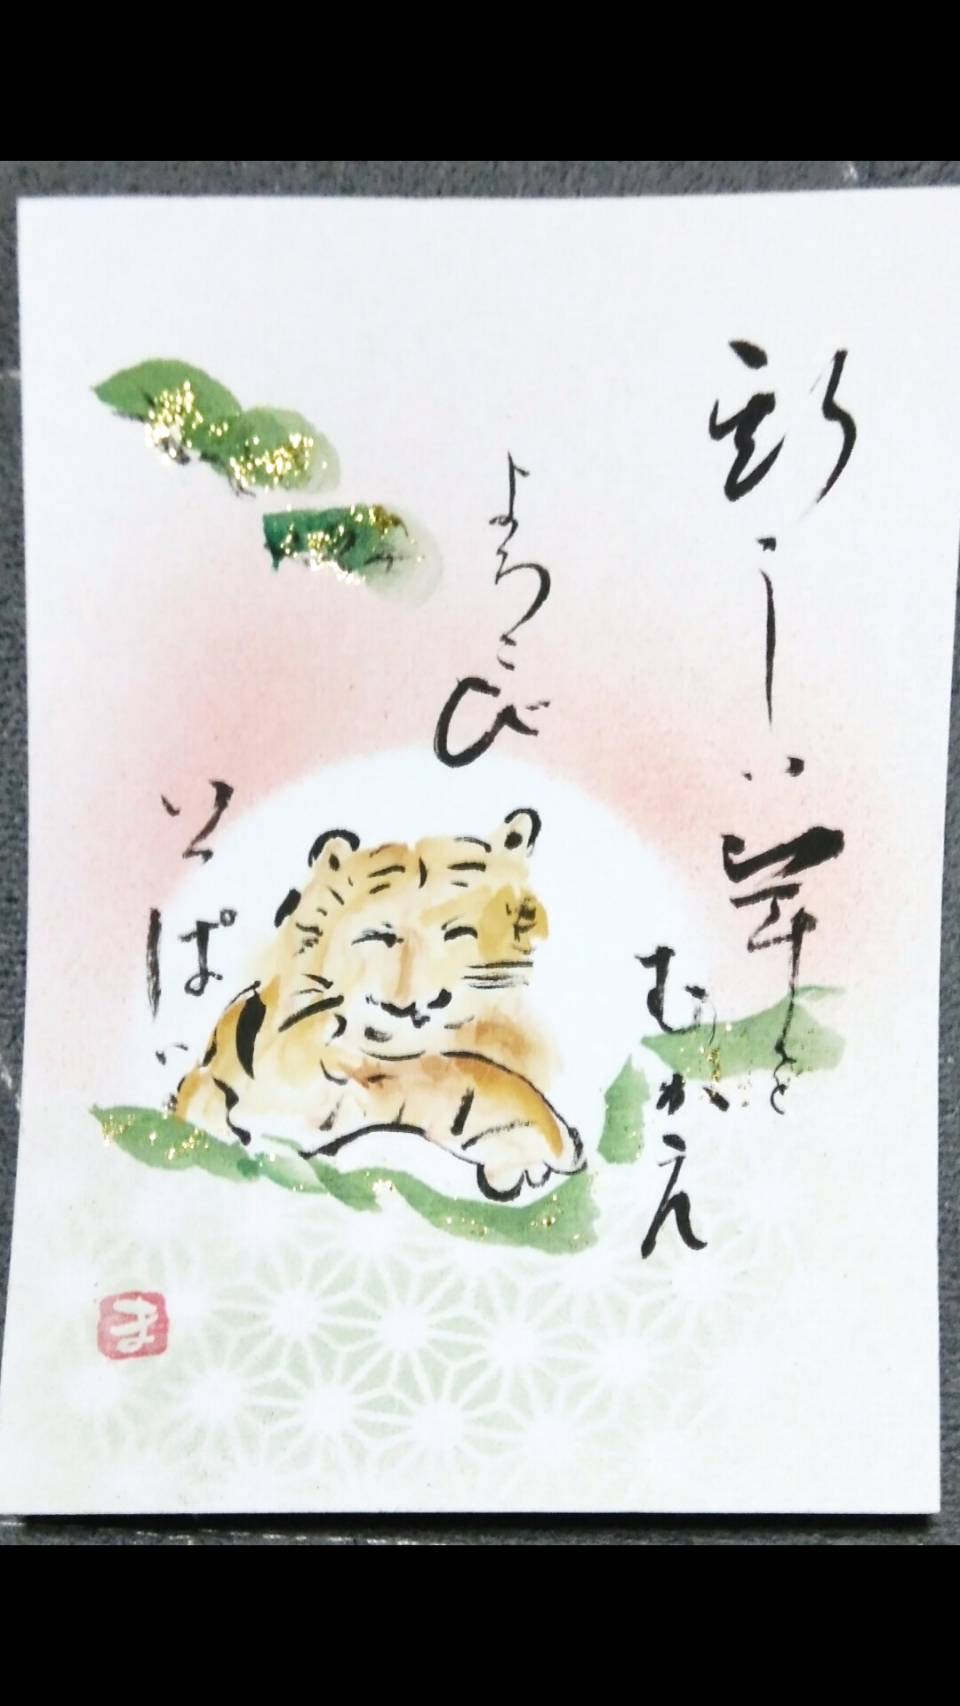 新しい年を
むかえ
よろこび
いっぱい
ま